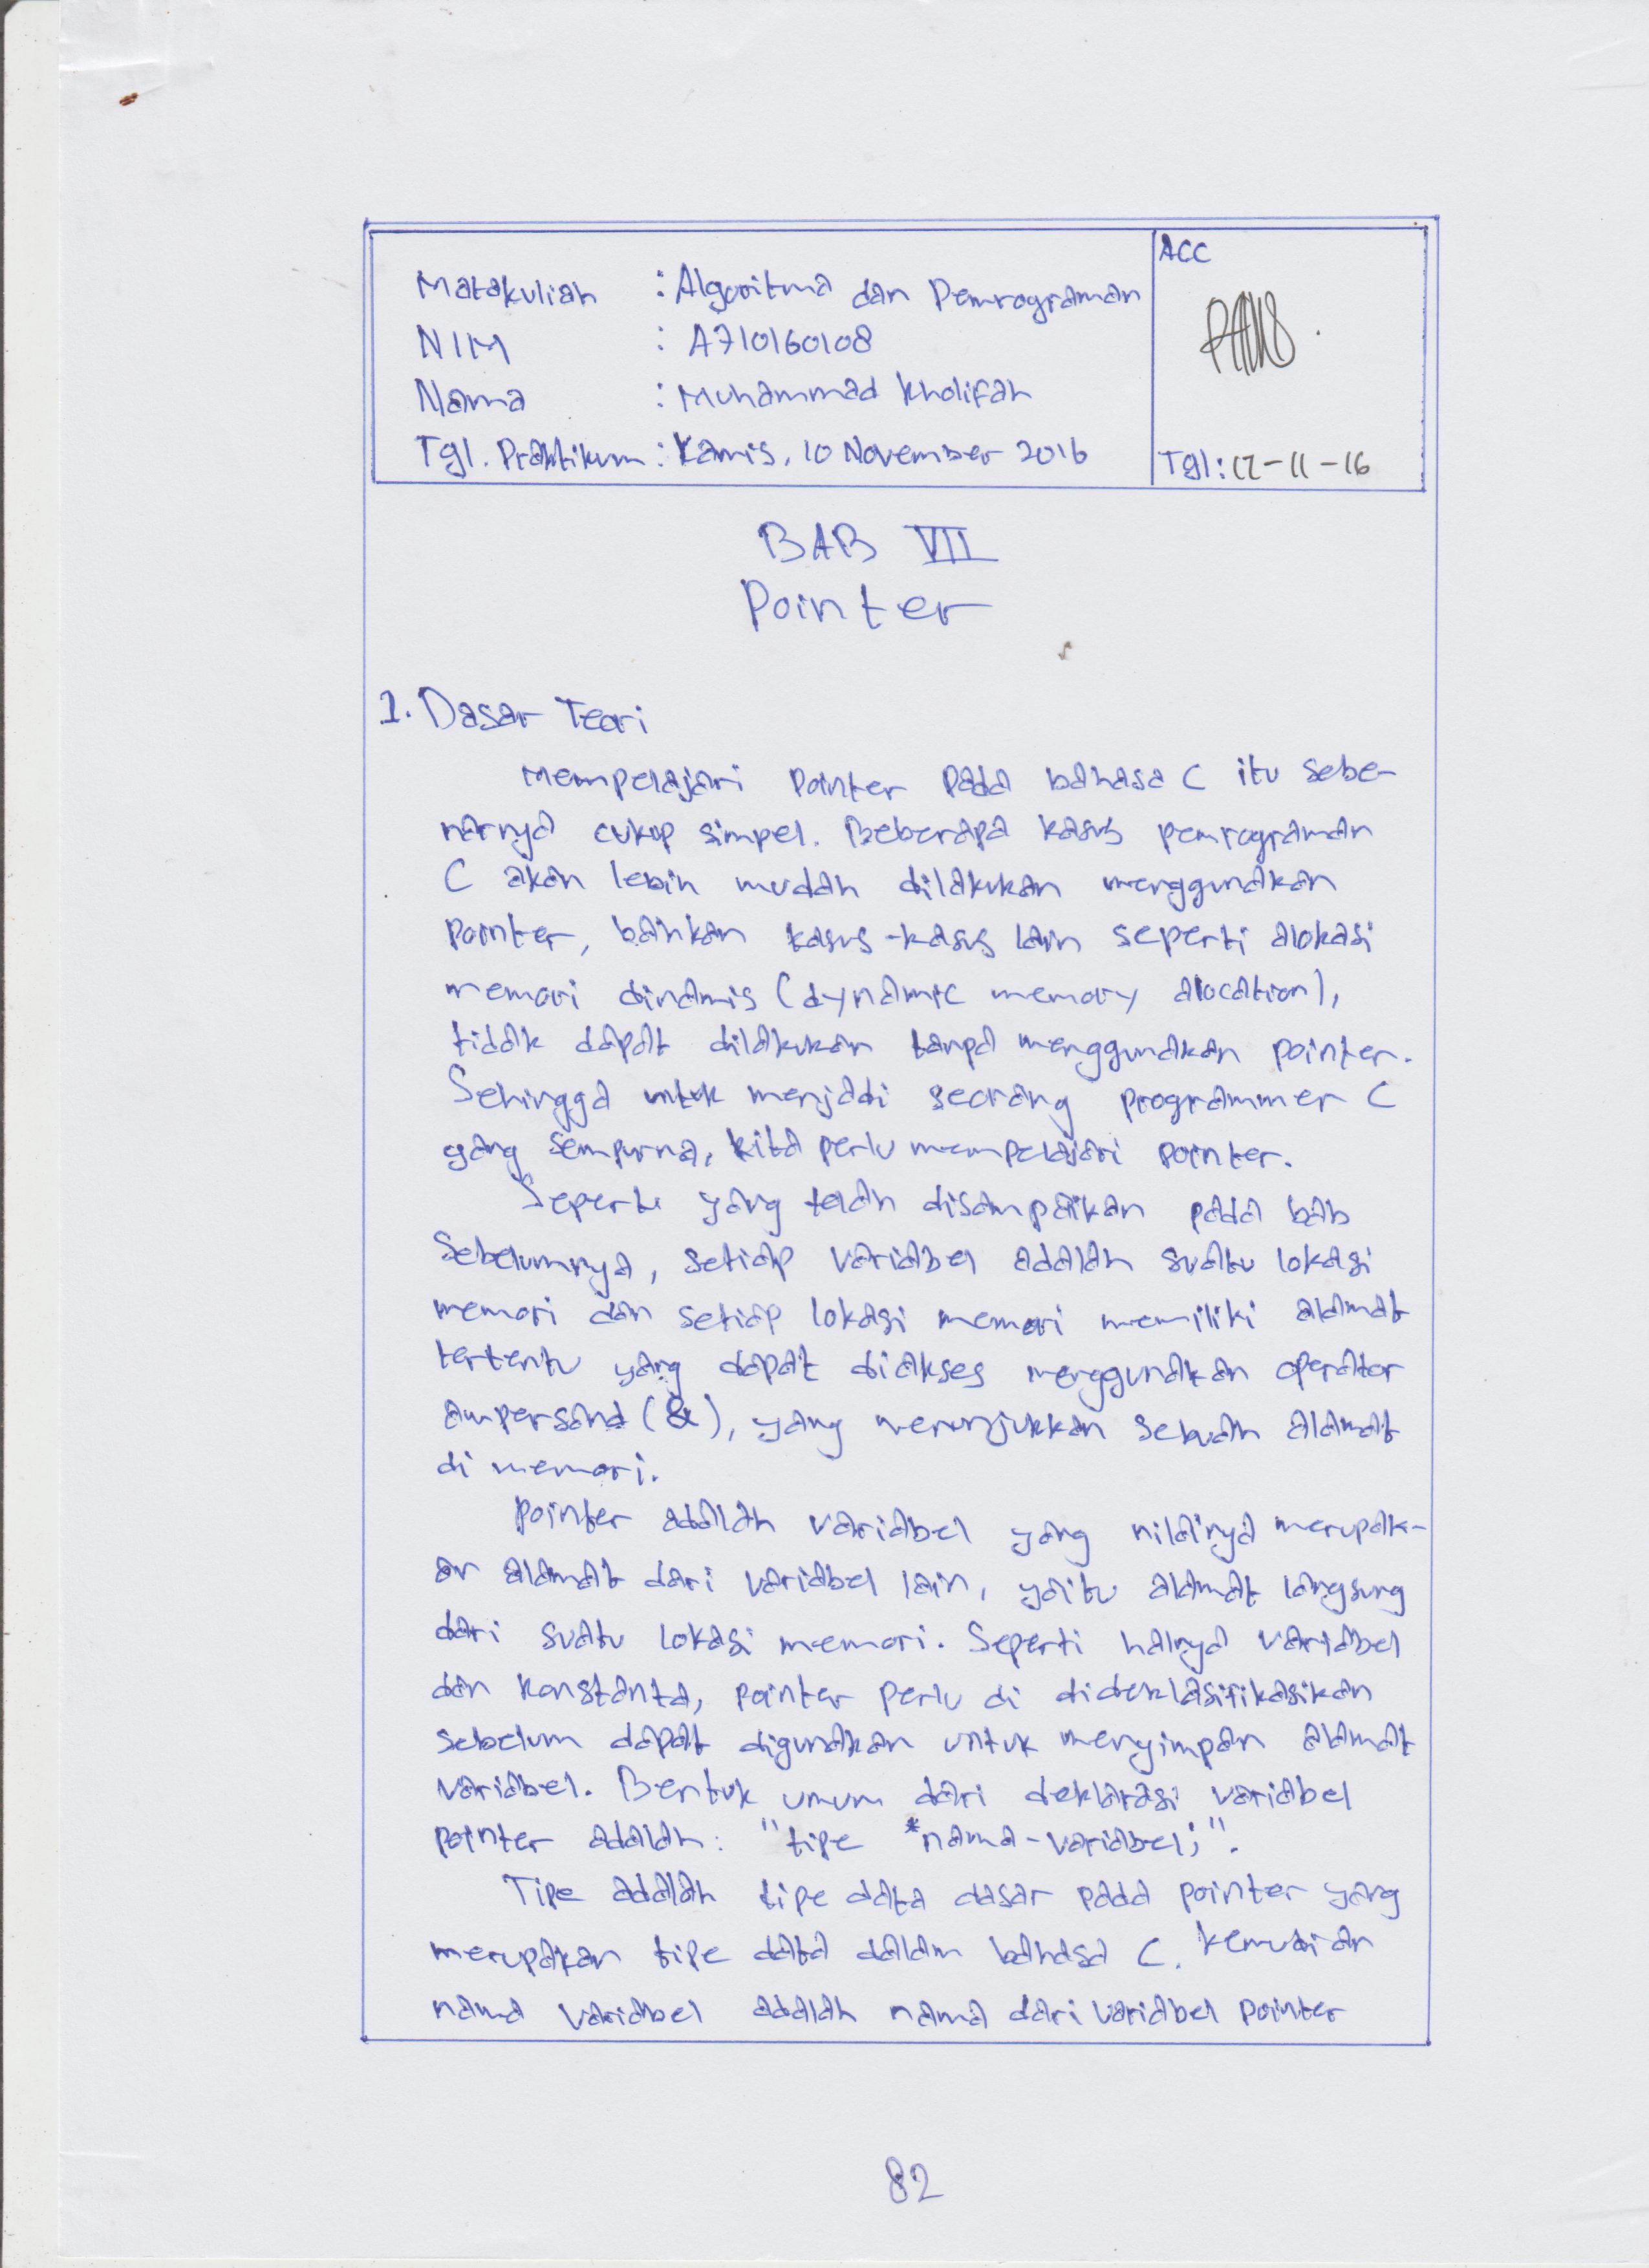 Matakuliah : Algoritma dan Pemrograman
NIM : A710160108
Nama : Muhammad Kholifah
Tgl. Praktikum : Kamis, 10 November 2016
ACC
Tgl: 17-11-16
BAB VII
Pointer
1. Dasar Teori
Mempelajari Pointer Pada bahasa C itu sebe-
narnya cukup simpel. Beberapa kasus pemrograman
C akan lebih mudah dilakukan menggunakan
pointer, bahkan kasus-kasus lain seperti alokasi
memori dinamis (dynamic memory alocation),
tidak dapat dilakukan tanpa menggunakan pointer.
Sehingga untuk menjadi seorang programmer C
yang sempurna, kita perlu mempelajari pointer.
Seperti yang telah disampaikan pada bab
Sebelumnya, setiap variabel adalah suatu lokasi
memori dan setiap lokasi memori memiliki alamat
tertentu yang dapat diakses menggunakan operator
ampersand (&), yang menunjukkan sebuah alamat
di memori.
Pointer adalah variabel yang nilainya merupak-
an alamat dari variabel lain, yaitu alamat langsung
dari suatu lokasi memori. Seperti halnya variabel
dan konstanta, pointer perlu di dideklasifikasikan
sebelum dapat digunakan untuk menyimpan alamat
variabel. Bentuk umum dari deklarasi variabel
pointer adalah: "tipe *nama-variabel;".
Tipe adalah tipe data dasar pada pointer yang
merupakan tipe data dalam bahasa C. kemudian
nama variabel adalah nama dari variabel pointer
82